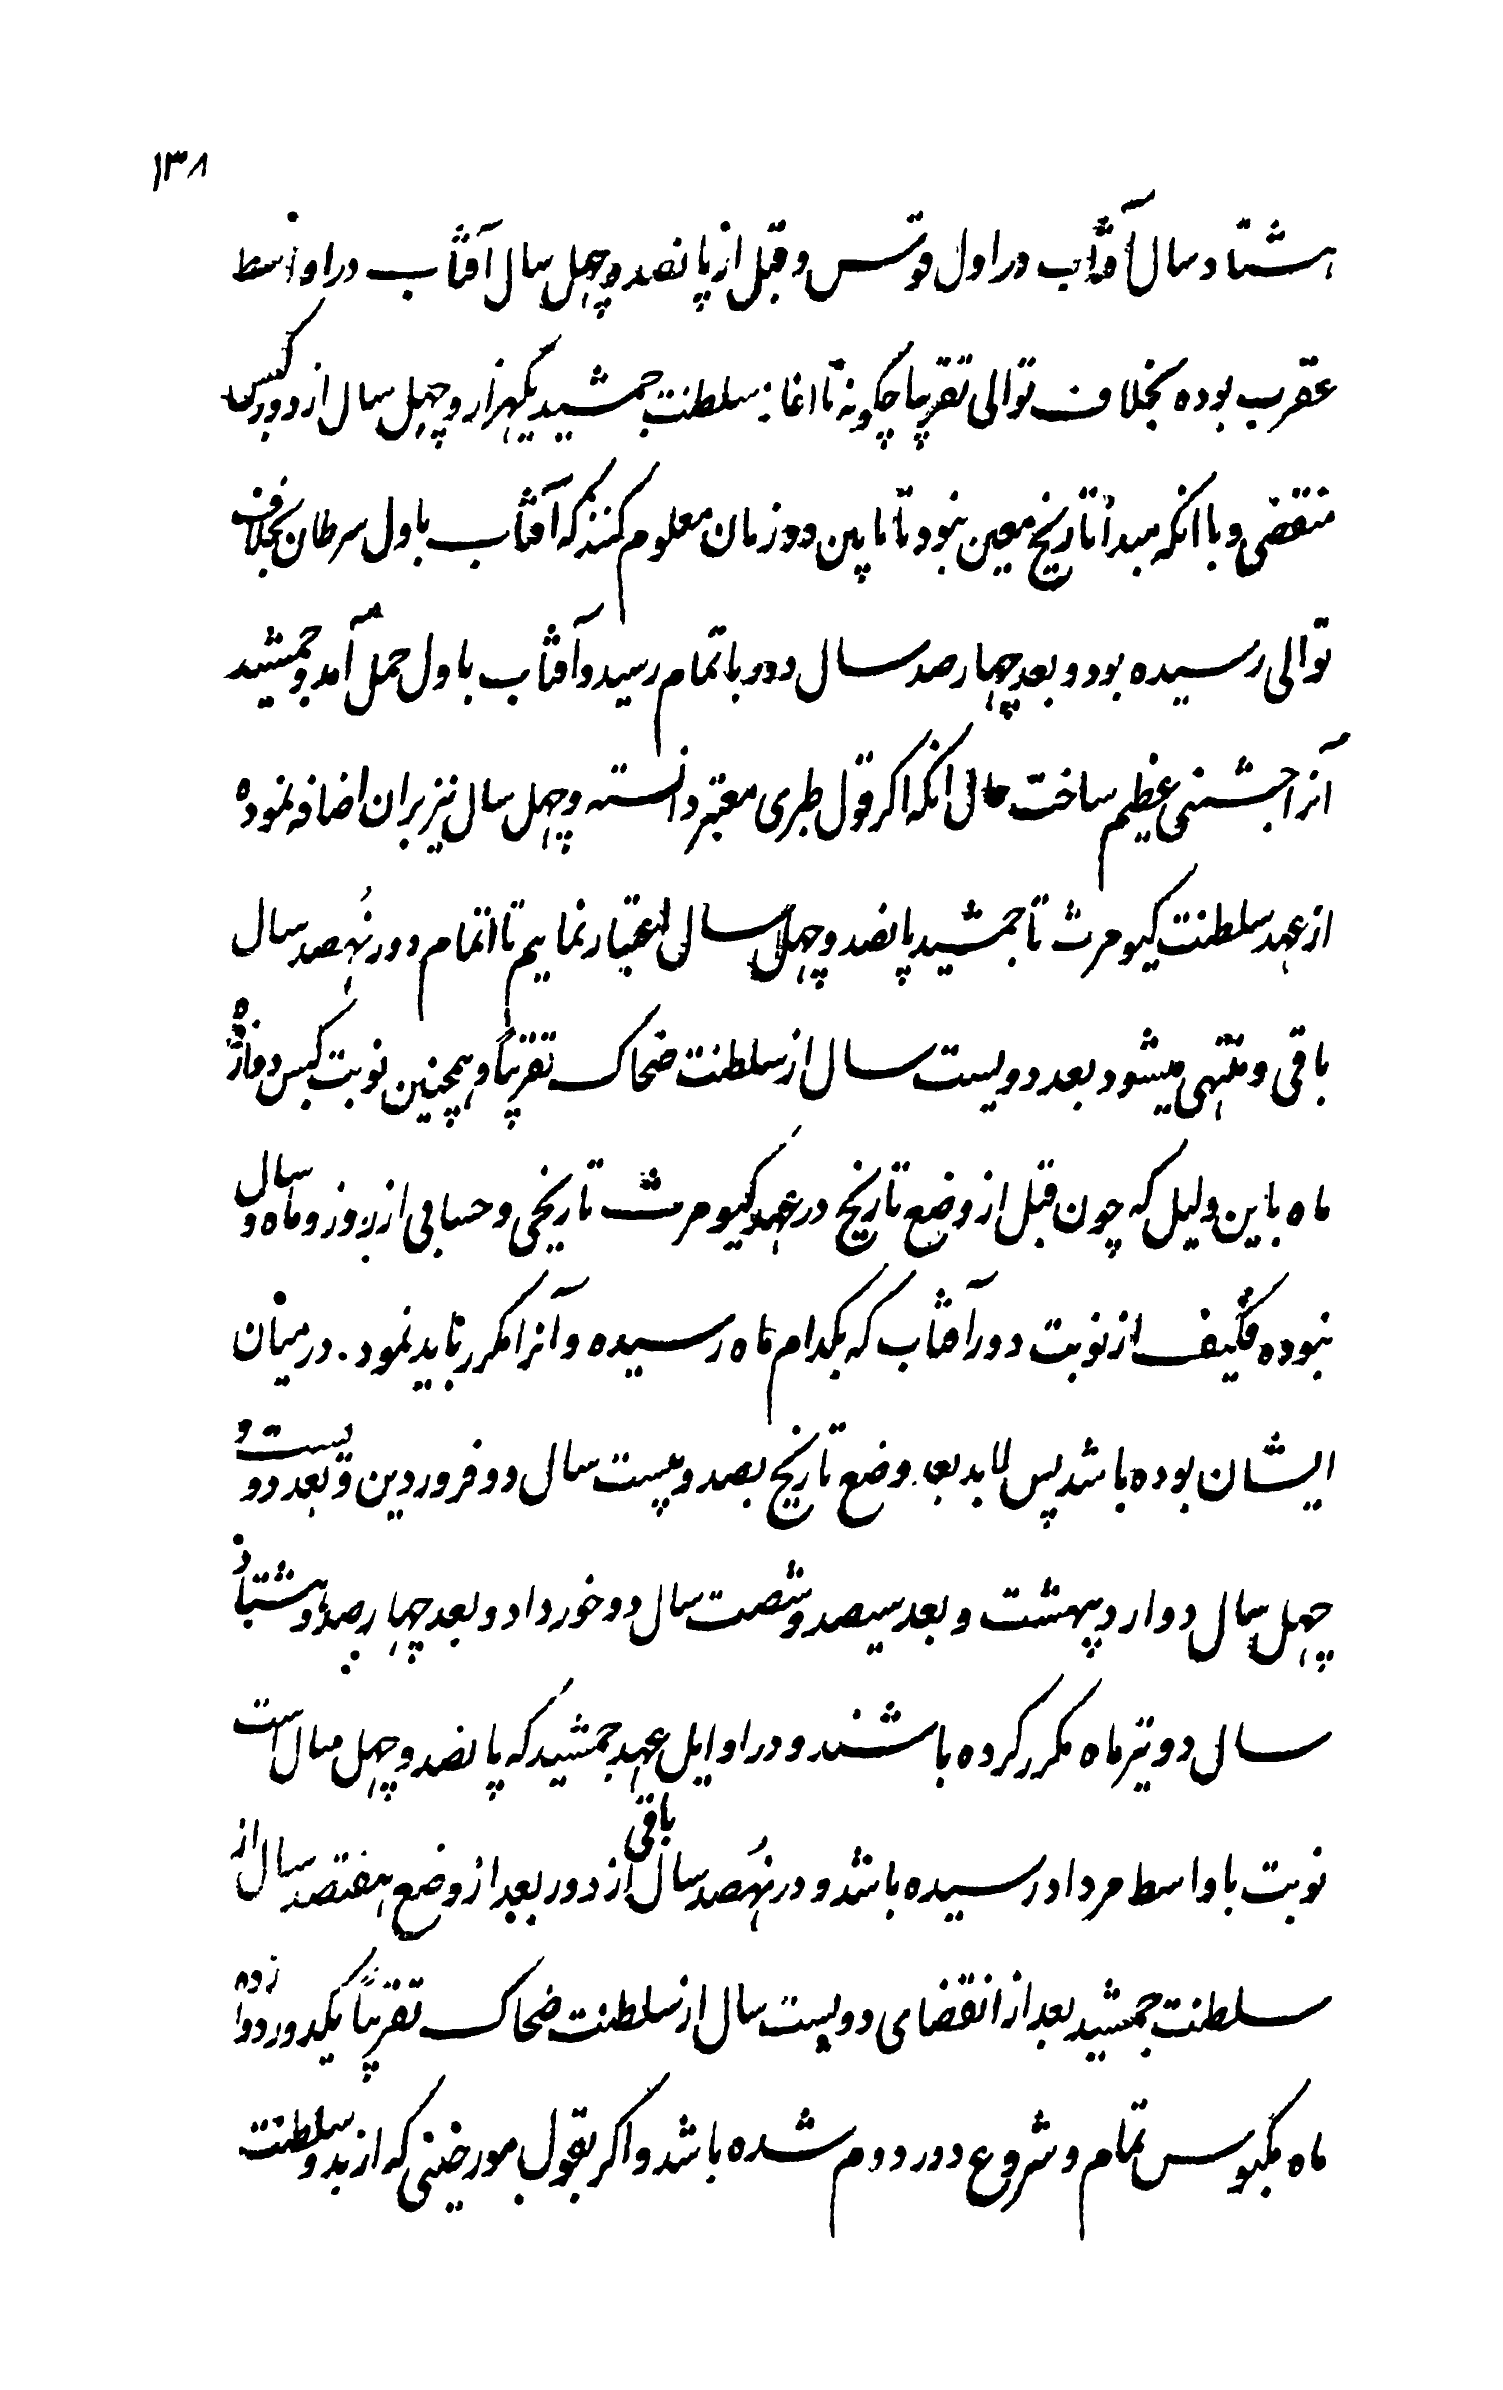 ۱۳۸
هشتاد سال آفتاب در اول قوس و قبل از پانصد و چهل سال آفتاب در اواسط
عقرب بوده بخلاف توالی تقریبا چکونه تا اغاز سلطنت جمشید یکهزار و چهل سال از دور کبس
منقضی و با انکه مبدأ تاریخ معین نبود تا مابین دو زمان معلوم کنند که آفتاب باول سرطان بخلاف
توالی رسیده بود و بعد چهارصد سال دور باتمام رسید و آفتاب باول حمل آمد و جمشید
آنرا جشنی عظیم ساخت حال انکه اکر قول طبری معتبر دانسته و چهل سال نیز بران اضافه نموده
از عهد سلطنت کیومرث تا جمشید پانصد و چهل سال اعتبار نماییم تا اتمام دور نهصد سال
باقی و منتهی میشود بعد دویست سال از سلطنت ضحاک تقریباً و همچنین نوبت کبس دوازده
ماه باین دلیل که چون قبل از وضع تاریخ در عهد کیومرث تاریخی و حسابی از روز و ماه و سال
نبوده فکیف از نوبت دور آفتاب که بکدام ماه رسیده و آنرا مکرر باید نمود. در میان
ایشان بوده باشد پس لابد بعد وضع تاریخ بصد و بیست سال دو فروردین و بعد دویست و
چهل سال دو اردیبهشت و بعد سیصد و شصت سال دو خورداد و بعد چهارصد و هشتاد
سال دو تیر ماه مکرر کرده باشند و در اوایل عهد جمشید که پانصد و چهل سال است
نوبت باواسط مرداد رسیده باشد و در نهصد سال باقی از دور بعد از وضع هفتصد سال از
سلطنت جمشید بعد از انقضای دویست سال از سلطنت ضحاک تقریباً یکدور دوازده
ماه مکبوس تمام و شروع دور دوم شده باشد و اکر بقول مورخینی که از بدو سلطنت